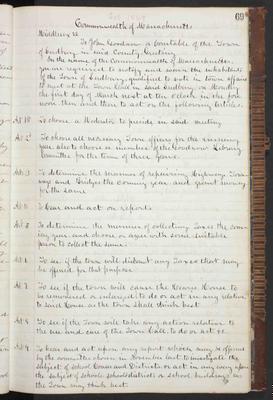 69
Commonwealth of Massachusetts
Middlesex ss
To John Goodnow a Constable of the Town
of Sudbury in said County Greeting
In the name of the Commonwealth of Massachusetts
you are required to notify and warn the inhabitants
of the Town of Sudbury, qualified to vote in town affairs
to meet at the Town Hall in said Sudbury on Monday
the first day of March next at ten o'clock in the fore
noon then and there to act on the following Articles.
Art 1st To choose a Moderator to preside in said meeting
Art 2 To choose all necessary Town officers for the ensuing
year also to choose a member of the Goodnow Library
Committee for the term of three years.
Art 3 To determine the manner of repairing Highways Town
ways and Bridges the coming year and grant money
for the same
Art 4 To hear and act on reports
Art 5 To determine the manner of collecting Taxes the com
ing year and choose or agree with some suitable
person to collect the same.
Art 6 To see if the town will abate any Taxes that may
be offered for that purpose
Art 7 To see if the town will cause the Hearse House to
be removed or enlarged to do or act in any relative
to said House as the town shall think best
Art 8 To see if the Town will take any action relative to
the use and care of the Town Hall, to do or act &c.
Art 9 To hear and act upon any report which may be offered
by the committee chosen in November last to investigate the
subject of school Houses and Districts or act in any way upon
the subject of schools school districts or school buildings as
the Town may think best